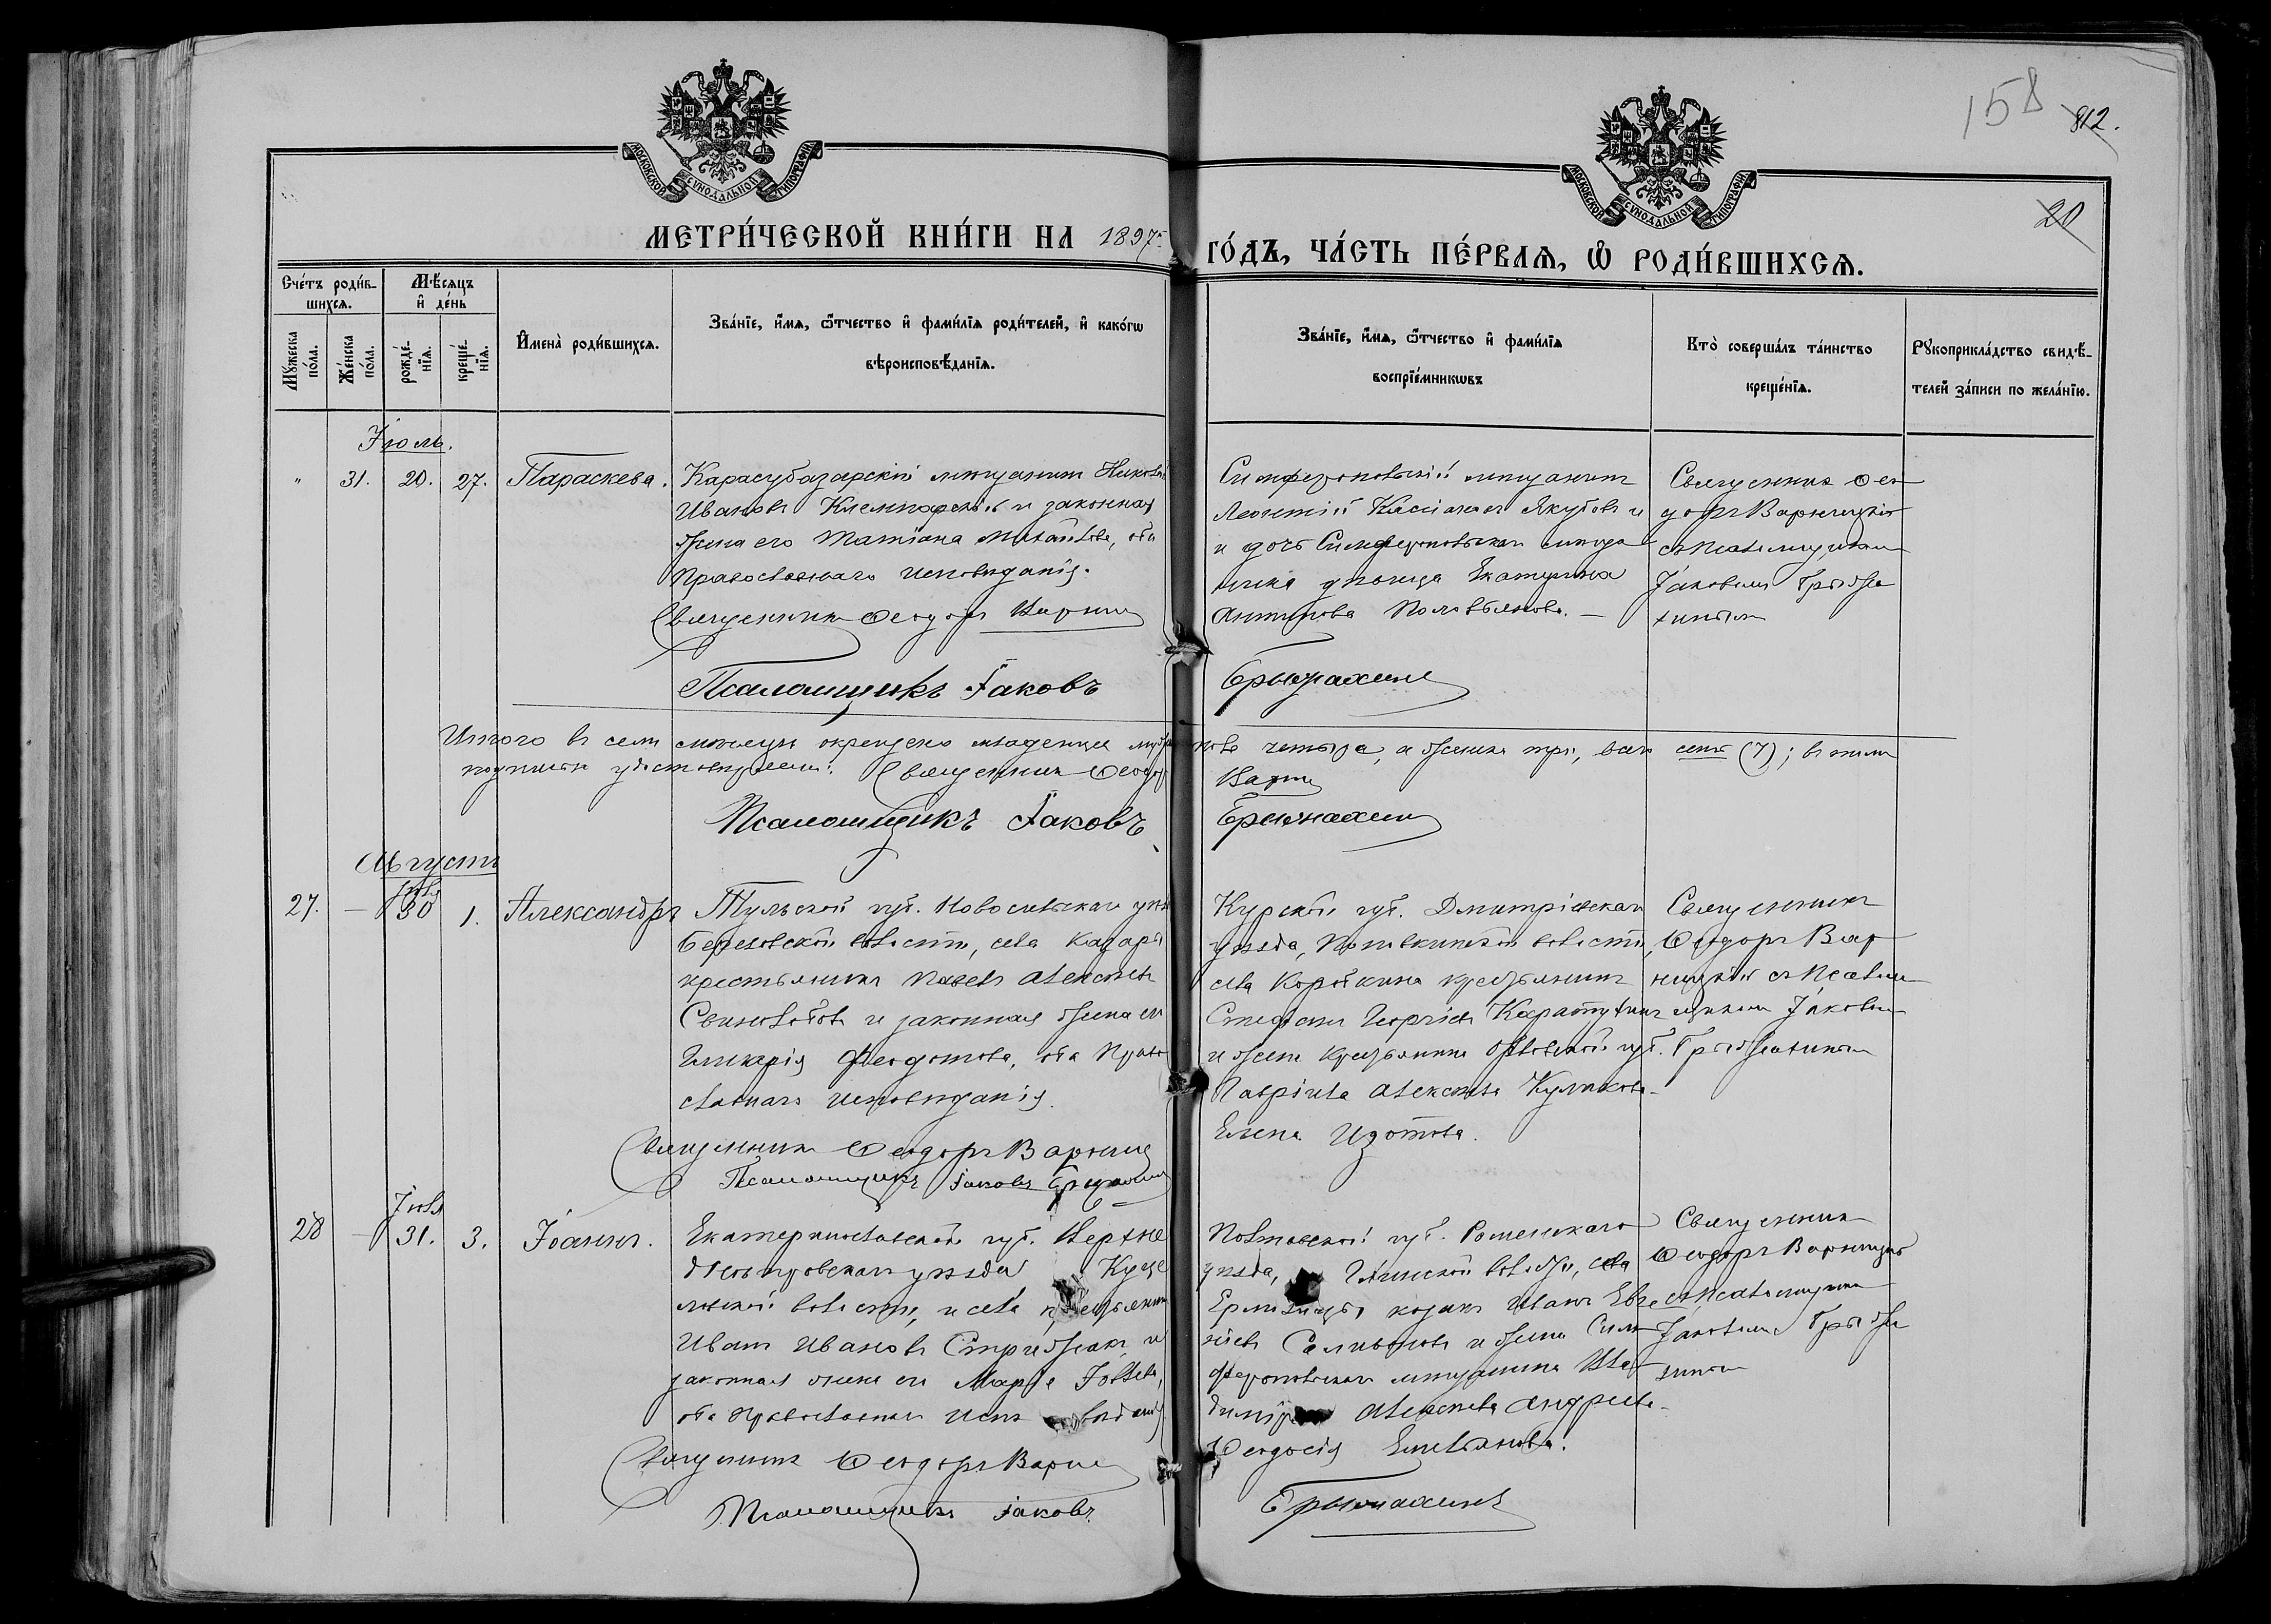 158
812.
20
МОСКОВСКОЙ СѴНОДАЛЬНОЙ ТИПОГРАФІИ
МОСКОВСКОЙ СѴНОДАЛЬНОЙ ТИПОГРАФІИ
МЕТРИ́ЧЕСКОЙ КНИ́ГИ НА 1897
ГО́ДЪ, ЧА́СТЬ ПЕ́РВАѦ, Ѡ҆ РОДИ́ВШИХСѦ.
Сче́тъ роди́в-
шихсѧ.
Мѣ́сѧцъ
и҆ де́нь
Мꙋ́жеска по́ла.
Же́нска по́ла.
рожде́-
нїѧ.
креще́-
нїѧ.
И҆мена̀ роди́вшихсѧ.
Зва́нїе, и҆́мѧ, ѻ҆́тчество и҆ фами́лїѧ роди́телей, и҆ како́гѡ
вѣроисповѣ́данїѧ.
Зва́нїе, и҆́мѧ, ѻ҆́тчество и҆ фами́лїѧ
воспрїе́мникѡвъ
Кто̀ соверша́лъ та́инство
креще́нїѧ.
Рꙋкоприкла́дство свидѣ́-
телей за́писи по жела́нїю.
Іюль.
" 31. 20. 27. Параскева.
Карасубазарскій мѣщанинъ
Ивановъ и законная
жена его Татіана Михайлова, оба
Православнаго исповѣданія.
Священникъ Ѳеодоръ Варниц
Псаломщикъ Іаковъ
Симферопольскій мѣщанинъ
Леонтій Касіановъ Якубовъ и
и дочь Симферопольскаго мѣща
нина дѣвица Екатерина
Антипова
Брыжахинъ
Священникъ Ѳео
доръ Варницкій
съ псаломщикомъ
Іаковомъ Брыжа
хинымъ
Итого въ семъ мѣсяцѣ окрещено младенцевъ мужеска пола четыре, а женска три, всего семь (7); въ чемъ
подписомъ удостовѣряемъ: Священникъ Ѳеодоръ Варниц
Псаломщикъ Іаковъ Брыжахинъ
Августъ
27. — Іюль 30 1. Александръ
Тульской губ. Новосильскаго уѣзд
Березовской волости, села
крестьянинъ Павелъ Алексѣевъ
и законная жена его
Гликерія Ѳеодотова, оба Право
славнаго исповѣданія.
Священникъ Ѳеодоръ Варниц
Псаломщикъ Іаковъ Брыжахинъ
Курской губ. Дмитріевскаго
уѣзда, волости,
села крестьянинъ
Стефанъ Георгіевъ
и жена крестьянина Орловской губ.
Гавріила Алексѣева Куликова
Елена Изотова.
Священникъ
Ѳеодоръ Вар
ницкій съ псалом
щикомъ Іаковомъ
Брыжахинымъ
28 — Іюля 31. 3. Іоаннъ.
Екатеринославской губ. Верхне
днѣпровскаго уѣзда
волости, и села крестьянинъ
Иванъ Ивановъ Стрижакъ и
законная жена его Марія
оба Православнаго исповѣданія
Священникъ Ѳеодоръ Варниц
Псаломщикъ Іаковъ
Полтавской губ. Роменскаго
уѣзда, Глинской волости, села
козакъ Иванъ Евге
ніевъ и жена Сим
феропольскаго мѣщанина Вла
диміра Алексѣева Андреева
Ѳеодосія Емельянова.
Брыжахинъ
Священникъ
Ѳеодоръ Варницкій
съ псаломщикомъ
Іаковомъ Брыжа
хинымъ